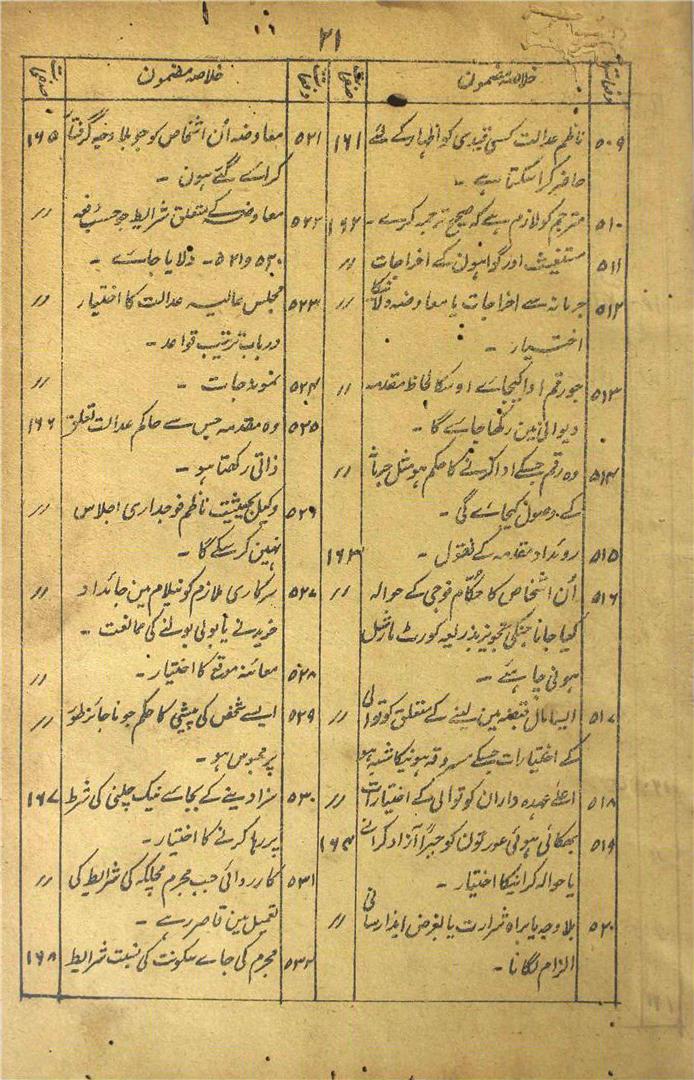 ۲۱
خلاصہ مضمون
۵۰۹ ناظم عدالت کسی قیدی کو اظہار کے لئے ۱۶۱
حاضر کرا سکتا ہے ۔
۵۱۰ مترجم کو لازم ہے کہ صحیح ترجمہ کرے ۔ ۱۶۲
۵۱۱ مستغیث اور گواہون کے اخراجات //
۵۱۲ جرمانہ سے اخراجات یا معاوضہ دلانیکا //
اختیار ۔
۵۱۳ جو رقم ادا کیجاے اوسکا لحاظ مقدمہ //
دیوانی مین رکھا جاے گا ۔
۵۱۴ وہ رقم جسکے ادا کرنے کا حکم ہو مثل جرمانہ //
کے وصول کیجاے گی ۔
۵۱۵ روئداد مقدمہ کے نقول ۔ ۱۶۳
۵۱۶ اُن اشخاص کا حکّام فوجی کے حوالہ //
کیا جانا جنکی تجویز بذریعہ کورٹ مارشل
ہونی چاہئے ۔
۵۱۷ ایسا مال قبضہ مین لینے کے متعلق کوتوالی //
کے اختیارات جسکے مسروقہ ہونیکا شبہ ہو
۵۱۸ اعلے عہدہ داران کوتوالی کے اختیارات //
۵۱۹ بھگائی ہوئی عورتون کو جبراً آزاد کرانے ۱۶۴
یا حوالہ کرانیکا اختیار ۔
۵۲۰ بلا وجہ یا براہ شرارت یا بغرض ایذا رسانی //
الزام لگانا ۔
خلاصہ مضمون
۵۲۱ معاوضہ اُن اشخاص کو جو بلا وجہ گرفتار ۱۶۵
کراے گئے ہون ۔
۵۲۲ معاوضہ کے متعلق شرایط جو حسب دفعہ //
۵۲۰ و ۵۲۱ ۔ دلایا جاے ۔
۵۲۳ مجلس عالیہ عدالت کا اختیار //
درباب ترتیب قواعد ۔
۵۲۴ نمونہ جات ۔ //
۵۲۵ وہ مقدمہ جس سے حاکم عدالت تعلق ۱۶۶
ذاتی رکھتا ہو ۔
۵۲۶ وکیل بحیثیت ناظم فوجداری اجلاس //
نہین کر سکے گا ۔
۵۲۷ سرکاری ملازم کو نیلام مین جائداد //
خریدنے یا بولی بولنے کی ممانعت ۔
۵۲۸ معائنہ موقع کا اختیار ۔ //
۵۲۹ ایسے شخص کی پیشی کا حکم جو ناجائز طور //
پر محبوس ہو ۔
۵۳۰ سزا دینے کے بجاے نیک چلنی کی شرط ۱۶۷
پر رہا کرنے کا اختیار ۔
۵۳۱ کارروائی جب مجرم مچلکہ کی شرایط کی //
تعمیل مین قاصر رہے ۔
۵۳۲ مجرم کی جاے سکونت کی نسبت شرایط ۱۶۸